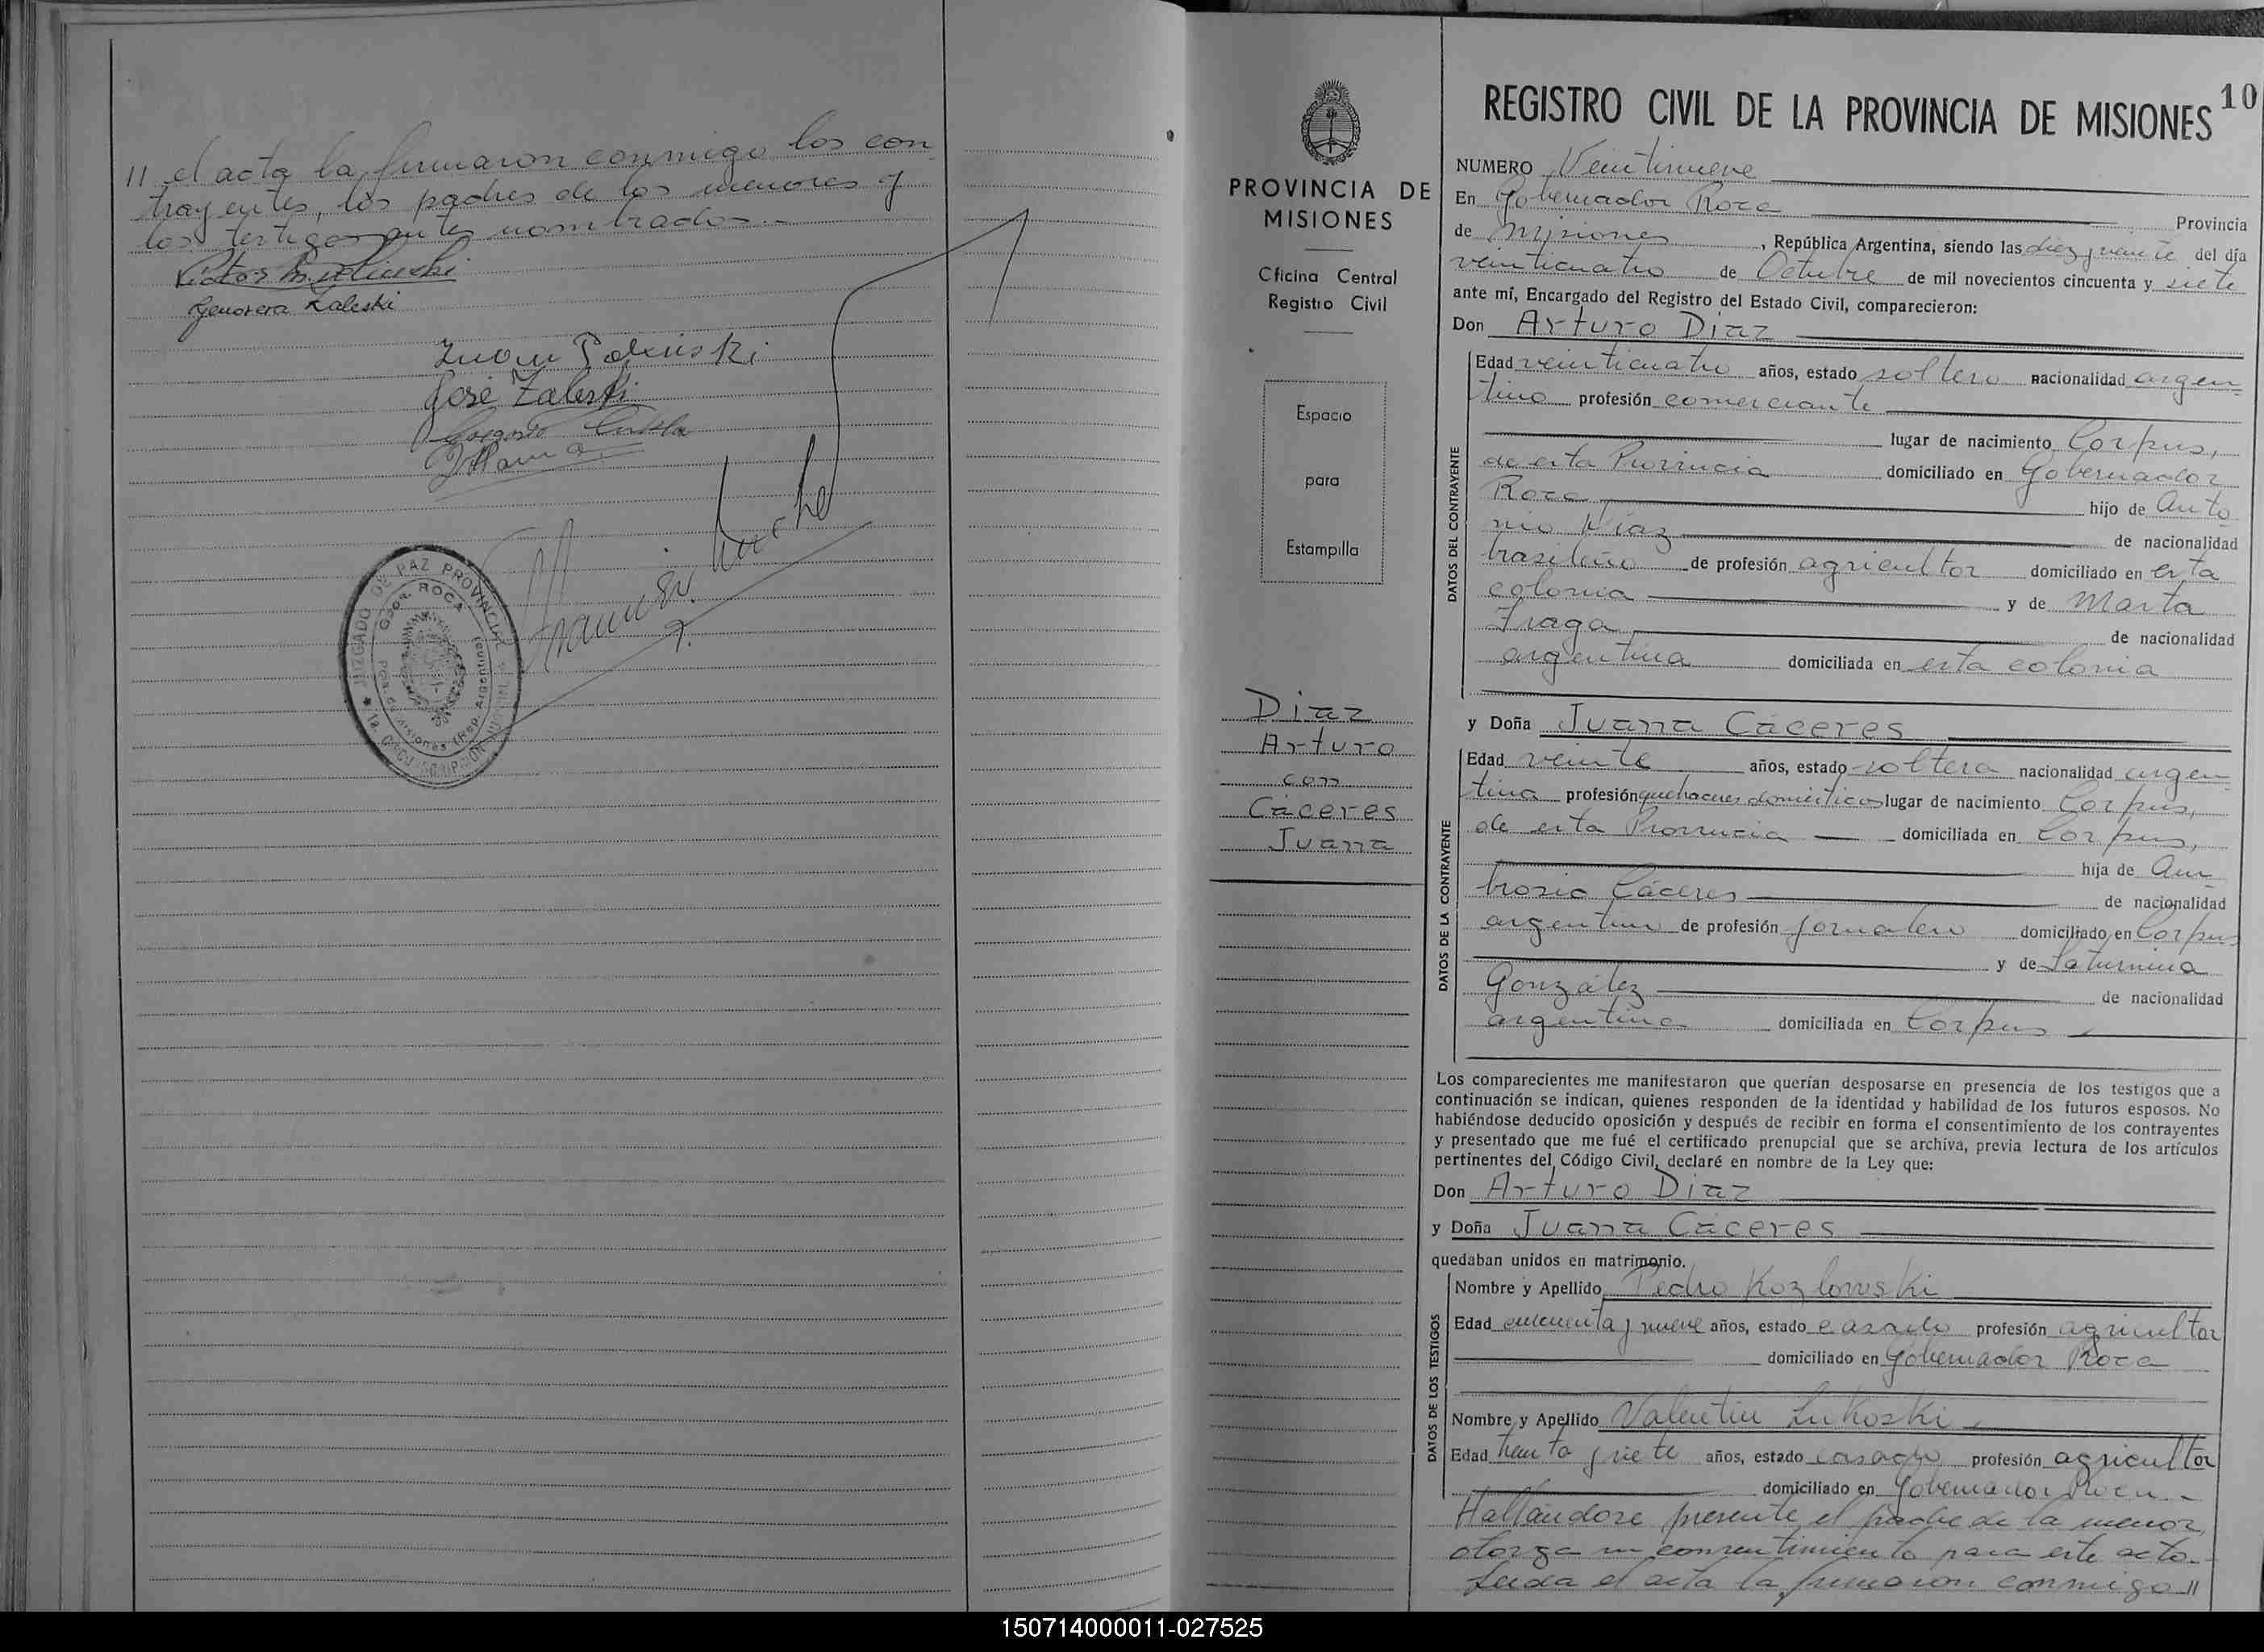 11 el acta la firmaron conmigo los con-
trayentes, los padres de los menores y
los testigos antes nombrados.-
Genovera Zaleski
José Zaleski
JUZGADO DE PAZ PROVINCIAL
GDOR. ROCA
(Rep. Argentina)
PROVINCIA DE
MISIONES
Oficina Central
Registro Civil
Espacio
para
Estampilla
Diaz
Arturo
con
Cáceres
Juana
REGISTRO CIVIL DE LA PROVINCIA DE MISIONES 10
NUMERO Veintinueve
En Gobernador Roca Provincia
de Misiones, República Argentina, siendo las diez y veinte del día
veinticuatro de Octubre de mil novecientos cincuenta y siete
ante mí, Encargado del Registro del Estado Civil, comparecieron:
Don Arturo Diaz
DATOS DEL CONTRAYENTE
Edad veinticuatro años, estado soltero nacionalidad argen-
tino profesión comerciante
lugar de nacimiento Corpus,
de esta Provincia domiciliado en Gobernador
Roca hijo de Anto-
nio Diaz de nacionalidad
brasileño de profesión agricultor domiciliado en esta
colonia y de Marta
Fraga de nacionalidad
argentina domiciliada en esta colonia
y Doña Juana Cáceres
DATOS DE LA CONTRAYENTE
Edad veinte años, estado soltera nacionalidad argen-
tina profesión quehaceres domésticos lugar de nacimiento Corpus,
de esta Provincia domiciliada en Corpus,
hija de Am-
brosio Cáceres de nacionalidad
argentino de profesión jornalero domiciliado en Corpus
y de Saturnina
González de nacionalidad
argentina domiciliada en Corpus
Los comparecientes me manifestaron que querían desposarse en presencia de los testigos que a
continuación se indican, quienes responden de la identidad y habilidad de los futuros esposos. No
habiéndose deducido oposición y después de recibir en forma el consentimiento de los contrayentes
y presentado que me fué el certificado prenupcial que se archiva, previa lectura de los artículos
pertinentes del Código Civil, declaré en nombre de la Ley que:
Don Arturo Diaz
y Doña Juana Cáceres
quedaban unidos en matrimonio.
DATOS DE LOS TESTIGOS
Nombre y Apellido Pedro Kozlowski
Edad cincuenta y nueve años, estado casado profesión agricultor
domiciliado en Gobernador Roca
Nombre y Apellido Valentin Lukoski
Edad treinta y siete años, estado casado profesión agricultor
domiciliado en Gobernador Roca.-
Hallándose presente el padre de la menor,
otorga su consentimiento para este acto.-
Leída el acta la firmaron conmigo 11
150714000011-027525